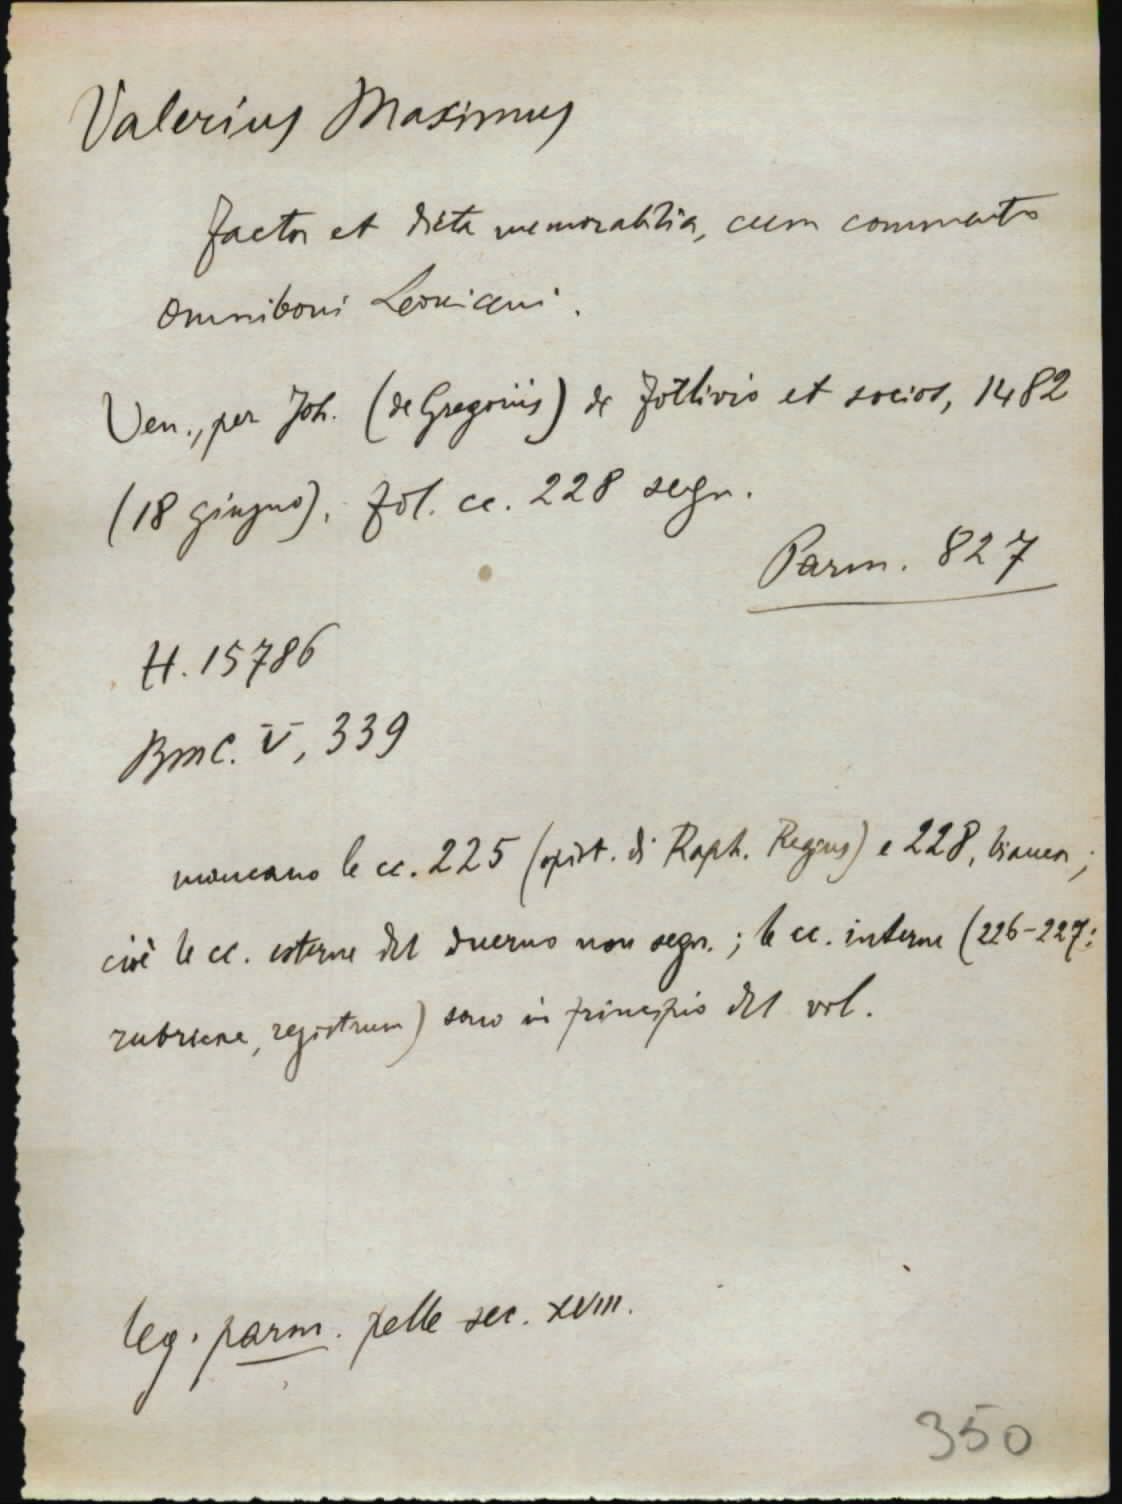 Valerius Maximus
Facta et dicta memorabilia, cum commento
Omniboni Leoniceni.
Ven., per Joh. (de Gregoriis) de Forlivio et socios, 1482
(18 giugno), fol. cc. 228 segn.
Parm. 827
H. 15786
BMC. V, 339
mancano le cc. 225 (epist. di Raph. Regius) e 228, bianca;
cioè le cc. esterne del duerno non segn.; le cc. interne (226-227:
rubricae, registrum) sono in principio del vol.
leg. parm. pelle sec. XVIII.
350